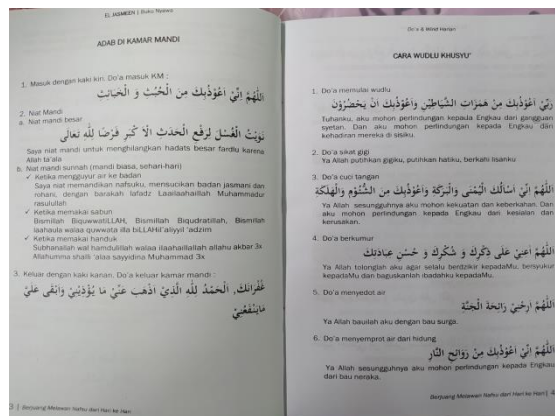 EL JASMEEN | Buku Nyawa
ADAB DI KAMAR MANDI
1. Masuk dengan kaki kiri. Do'a masuk KM :
اَللّٰهُمَّ اِنِّيْ اَعُوْذُبِكَ مِنَ الْخُبُثِ وَ الْخَبَائِثِ
2. Niat Mandi
a. Niat mandi besar
نَوَيْتُ الْغُسْلَ لِرَفْعِ الْحَدَثِ الْاَ كْبَرِ فَرْضًا لِلّٰهِ تَعَالَى
Saya niat mandi untuk menghilangkan hadats besar fardlu karena
Allah ta'ala
b. Niat mandi sunnah (mandi biasa, sehari-hari)
✓ Ketika mengguyur air ke badan
Saya niat memandikan nafsuku, mensucikan badan jasmani dan
rohani, dengan barakah lafadz Laailaahaillah Muhammadur
rasulullah
✓ Ketika memakai sabun
Bismillah BiquwwatiLLAH, Bismillah Biqudratillah, Bismillah
laahaula walaa quwwata illa biLLAHil'aliyyil 'adzim
✓ Ketika memakai handuk
Subhanallah wal hamdulillah walaa ilaahaillallah allahu akbar 3x
Allahumma shalli 'alaa sayyidina Muhammad 3x
3. Keluar dengan kaki kanan. Do'a keluar kamar mandi :
غُفْرَانَكَ, اَلْحَمْدُ لِلّٰهِ الَّذِيْ اَذْهَبَ عَنِّيْ مَا يُؤْذِيْنِيْ وَاَبْقَى عَلَيَّ
مَايَنْفَعُنِيْ
3 | Berjuang Melawan Nafsu dari Hari ke Hari
Do'a & Ikhtiar Harian
CARA WUDLU KHUSYU'
1. Do'a memulai wudlu
رَبِّيْ اَعُوْذُبِكَ مِنْ هَمَزَاتِ الشَّيَاطِيْنِ وَاَعُوْذُبِكَ اَنْ يَحْضُرُوْنَ
Tuhanku, aku mohon perlindungan kepada Engkau dari gangguan
syetan. Dan aku mohon perlindungan kepada Engkau dari
kehadiran mereka di sisiku.
2. Do'a sikat gigi
Ya Allah putihkan gigiku, putihkan hatiku, berkahi lisanku
3. Do'a cuci tangan
اَللّٰهُمَّ اِنِّيْ اَسْاَلُكَ الْيُمْنَى وَالْبَرَكَةَ وَاَعُوْذُبِكَ مِنَ الشُّئُوْمِ وَالْهَلَكَةِ
Ya Allah sesungguhnya aku mohon kekuatan dan keberkahan. Dan
aku mohon perlindungan kepada Engkau dari kesialan dan
kerusakan.
4. Do'a berkumur
اَللّٰهُمَّ اَعِنِّيْ عَلَى ذِكْرِكَ وَ شُكْرِكَ وَ حُسْنِ عِبَادَتِكَ
Ya Allah tolonglah aku agar selalu berdzikir kepadaMu, bersyukur
kepadaMu dan baguskanlah ibadahku kepadaMu.
5. Do'a menyedot air
اَللّٰهُمَّ اَرِحْنِيْ رَائِحَةَ الْجَنَّةِ
Ya Allah bauilah aku dengan bau surga.
6. Do'a menyemprot air dari hidung
اَللّٰهُمَّ اِنِّيْ اَعُوْذُبِكَ مِنْ رَوَائِحِ النَّارِ
Ya Allah sesungguhnya aku mohon perlindungan kepada Engkau
dari bau neraka.
Berjuang Melawan Nafsu dari Hari ke Hari | 4